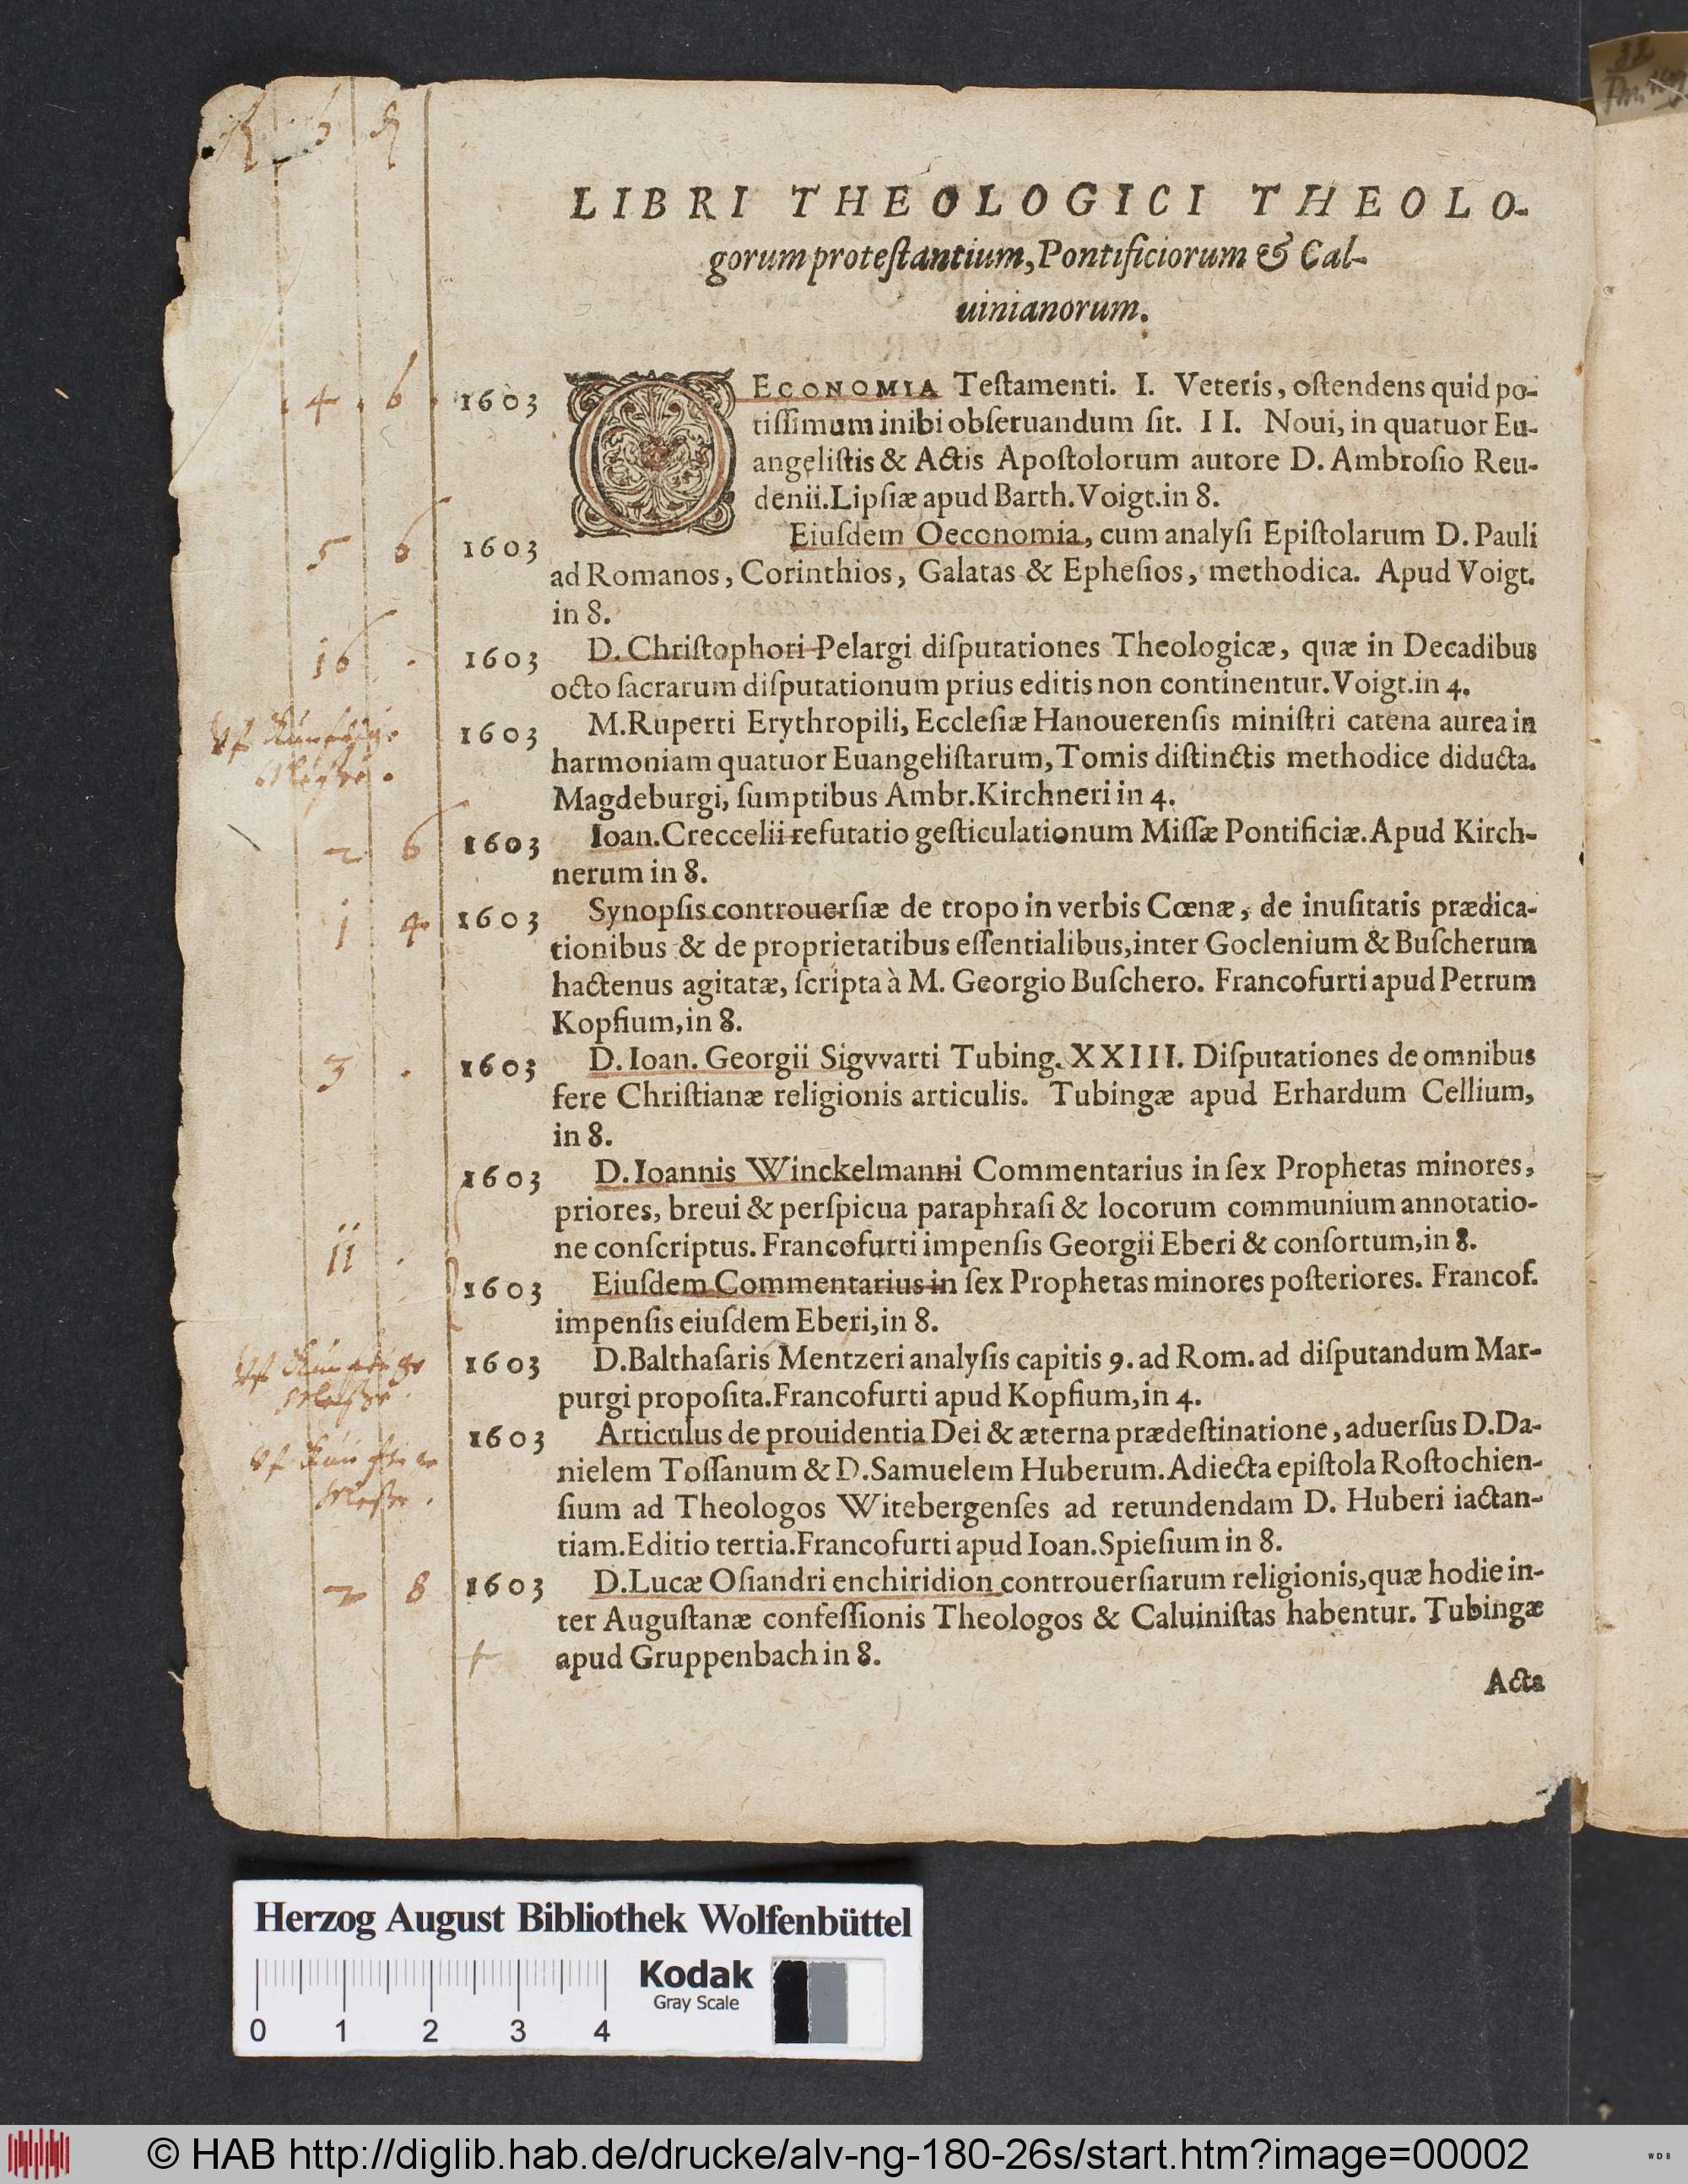 LIBRI THEOLOGICI THEOLO-
gorum proteſtantium, Pontificiorum & Cal-
uinianorum.
4 6 1603 OECONOMIA Teſtamenti. I. Veteris, oſtendens quid po-
tiſſimum inibi obſeruandum ſit. II. Noui, in quatuor Eu-
angeliſtis & Actis Apoſtolorum autore D. Ambroſio Reu-
denii. Lipſiæ apud Barth. Voigt. in 8.
5 6 1603 Eiuſdem Oeconomia, cum analyſi Epiſtolarum D. Pauli
ad Romanos, Corinthios, Galatas & Epheſios, methodica. Apud Voigt.
in 8.
16 . 1603 D. Chriſtophori Pelargi diſputationes Theologicæ, quæ in Decadibus
octo ſacrarum diſputationum prius editis non continentur. Voigt. in 4.
1603 M. Ruperti Erythropili, Eccleſiæ Hanouerenſis miniſtri catena aurea in
harmoniam quatuor Euangeliſtarum, Tomis diſtinctis methodice diducta.
Magdeburgi, ſumptibus Ambr. Kirchneri in 4.
2 6 1603 Ioan. Creccelii refutatio geſticulationum Miſſæ Pontificiæ. Apud Kirch-
nerum in 8.
1 4 1603 Synopſis controuerſiæ de tropo in verbis Cœnæ, de inuſitatis prædica-
tionibus & de proprietatibus eſſentialibus, inter Goclenium & Buſcherum
hactenus agitatæ, ſcripta à M. Georgio Buſchero. Francofurti apud Petrum
Kopfium, in 8.
3 . 1603 D. Ioan. Georgii Sigvvarti Tubing. XXIII. Diſputationes de omnibus
fere Chriſtianæ religionis articulis. Tubingæ apud Erhardum Cellium,
in 8.
1603 D. Ioannis Winckelmanni Commentarius in ſex Prophetas minores,
priores, breui & perſpicua paraphraſi & locorum communium annotatio-
11 . ne conſcriptus. Francofurti impenſis Georgii Eberi & conſortum, in 8.
1603 Eiuſdem Commentarius in ſex Prophetas minores poſteriores. Francof.
impenſis eiuſdem Eberi, in 8.
1603 D. Balthaſaris Mentzeri analyſis capitis 9. ad Rom. ad diſputandum Mar-
purgi propoſita. Francofurti apud Kopfium, in 4.
1603 Articulus de prouidentia Dei & æterna prædeſtinatione, aduerſus D. Da-
nielem Toſſanum & D. Samuelem Huberum. Adiecta epiſtola Roſtochien-
ſium ad Theologos Witebergenſes ad retundendam D. Huberi iactan-
tiam. Editio tertia. Francofurti apud Ioan. Spieſium in 8.
2 8 1603 D. Lucæ Oſiandri enchiridion controuerſiarum religionis, quæ hodie in-
ter Auguſtanæ confeſſionis Theologos & Caluiniſtas habentur. Tubingæ
apud Gruppenbach in 8.
Acta
Herzog August Bibliothek Wolfenbüttel
Kodak
Gray Scale
0 1 2 3 4
© HAB http://diglib.hab.de/drucke/alv-ng-180-26s/start.htm?image=00002
WDB